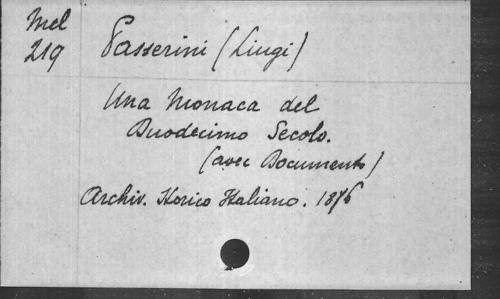 Mel
219
Passerini (Liugi)
Una Monaca del
Duodecimo Secolo.
(avec Documents)
Archiv. Storico Italiano. 1876